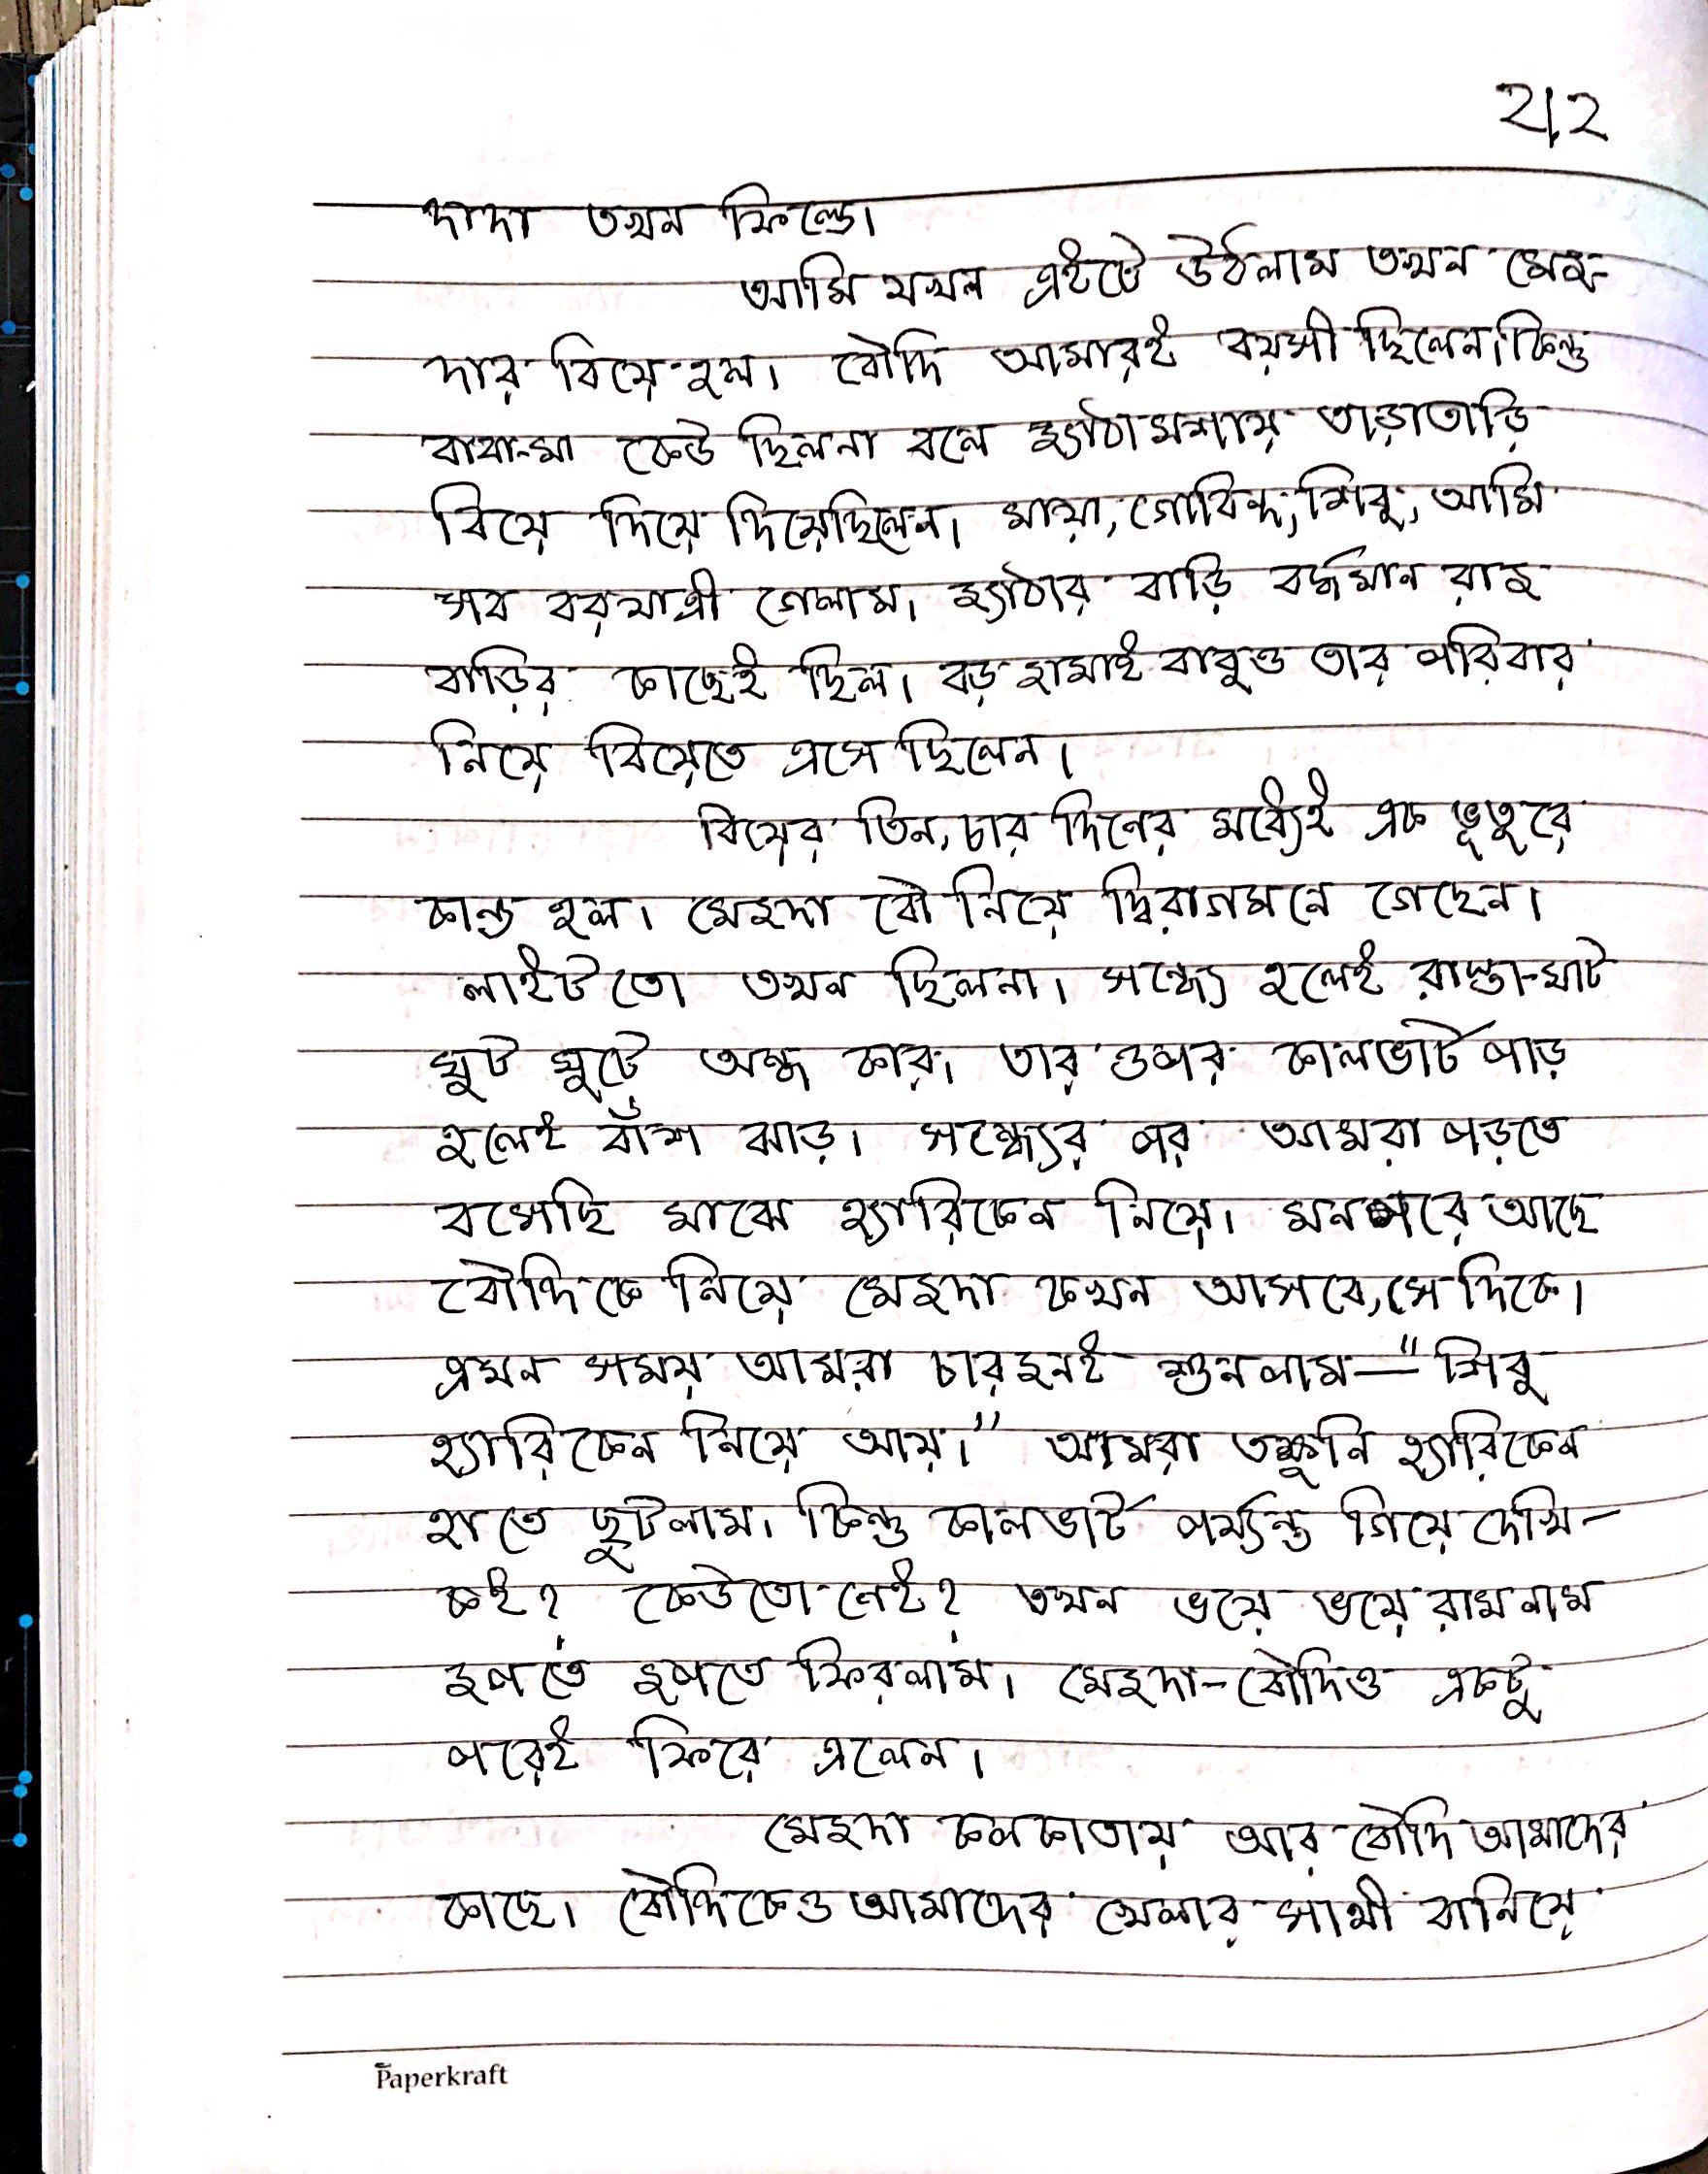 ২১২
দাদা তখন ফিল্ডে।
আমি যখন এইটে উঠলাম তখন মেজ-
দার বিয়ে হল। বৌদি আমারই বয়সী ছিলেন। কিন্তু
বাবা-মা কেউ ছিলনা বলে জ্যাঠামশায় তাড়াতাড়ি
বিয়ে দিয়ে দিয়েছিলেন। মায়া, গোবিন্দ, শিবু, আমি
সব বরযাত্রী গেলাম। জ্যাঠার বাড়ি বর্দ্ধমান রাজ
বাড়ির কাছেই ছিল। বড় জামাই বাবুও তার পরিবার
নিয়ে বিয়েতে এসে ছিলেন।
বিয়ের তিন, চার দিনের মধ্যেই এক ভূতুরে
কান্ড হল। মেজদা বৌ নিয়ে দ্বিরাগমনে গেছেন।
লাইট তো তখন ছিলনা। সন্ধ্যে হলেই রাস্তা-ঘাট
ঘুট ঘুটে অন্ধ কার। তার ওপর কালভার্ট পাড়
হলেই বাঁশ ঝাড়। সন্ধ্যের পর আমরা পড়তে
বসেছি মাঝে হ্যারিকেন নিয়ে। মন পরে আছে
বৌদি কে নিয়ে মেজদা কখন আসবে, সে দিকে।
এমন সময় আমরা চারজনই শুনলাম — "শিবু
হ্যারিকেন নিয়ে আয়।" আমরা তক্ষুনি হ্যারিকেন
হাতে ছুটলাম। কিন্তু কালভার্ট পর্য্যন্ত গিয়ে দেখি -
কই? কেউতো নেই? তখন ভয়ে ভয়ে রামনাম
জপতে জপতে ফিরলাম। মেজদা-বৌদিও একটু
পরেই ফিরে এলেন।
মেজদা কলকাতায় আর বৌদি আমাদের
কাছে। বৌদিকেও আমাদের খেলার সাথী বানিয়ে
Paperkraft